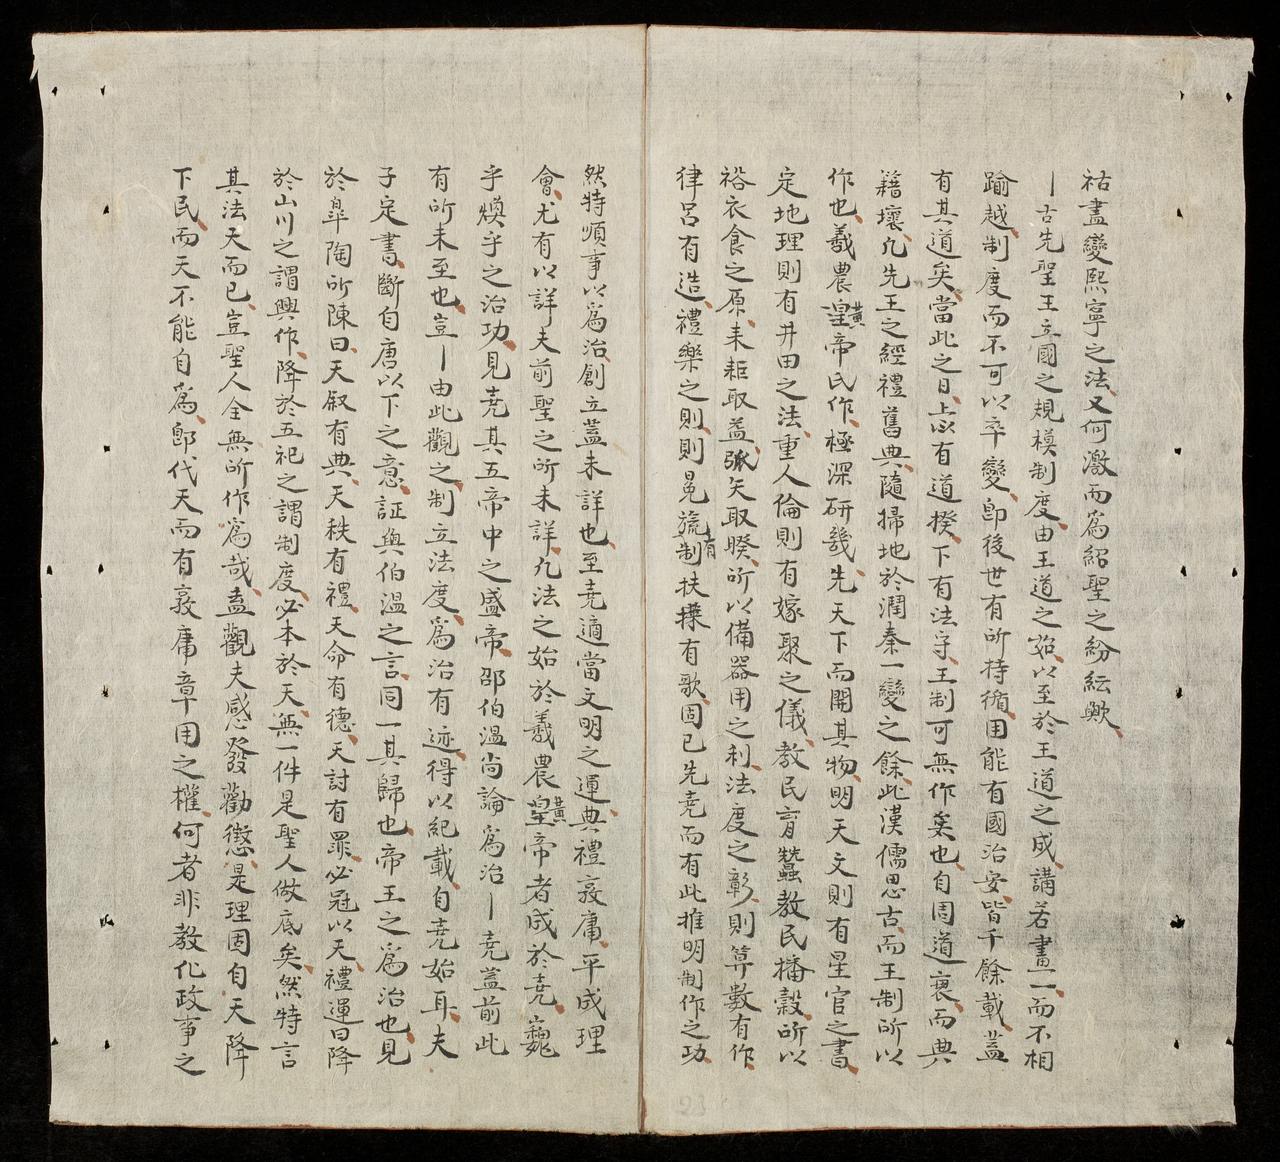 祐盡變熙寧之法又何激而爲紹聖之紛紜歟
丨古先聖王立國之規模制度由王道之始以至於王道之成講若畫一而不相
踰越制度而不可以卒變即後世有所持循用能有國治安皆千餘載蓋
有其道矣當此之日上必有道揆下有法守王制可無作矣也自周道衰而典
籍壞凡先王之經禮舊典隨掃地於濶秦一變之餘此漢儒思古而王制所以
作也羲農皇黃帝氏作極深研幾先天下而開其物明天文則有星官之書
定地理則有井田之法重人倫則有嫁聚之儀教民育蠶教民播穀所以
裕衣食之原耒耟取益弧矢取暌所以備器用之利法度之彰則算數有作
律呂有造禮樂之則則冕旒有制扶犂有歌固已先堯而有此推明制作之功
然特順事以爲治創立蓋未詳也至堯適當文明之運典禮敦庸平成理
會尤有以詳夫前聖之所未詳凡法之始於羲農皇黃帝者成於堯巍
乎煥乎之治功見堯其五帝中之盛帝邵伯溫尚論爲治丨堯蓋前此
有所未至也豈丨由此觀之制立法度爲治有迹得以紀載自堯始耳夫
子定書斷自唐以下之意証與伯溫之言同一其歸也帝王之爲治也見
於皐陶所陳曰天叙有典天秩有禮天命有德天討有罪必冠以天禮運曰降
於山川之謂興作降於五祀之謂制度必本於天無一件是聖人做底矣然特言
其法天而已豈聖人全無所作爲哉盍觀夫感發勸懲是理固自天降
下民而天不能自爲即代天而有敦庸章用之權何者非教化政事之